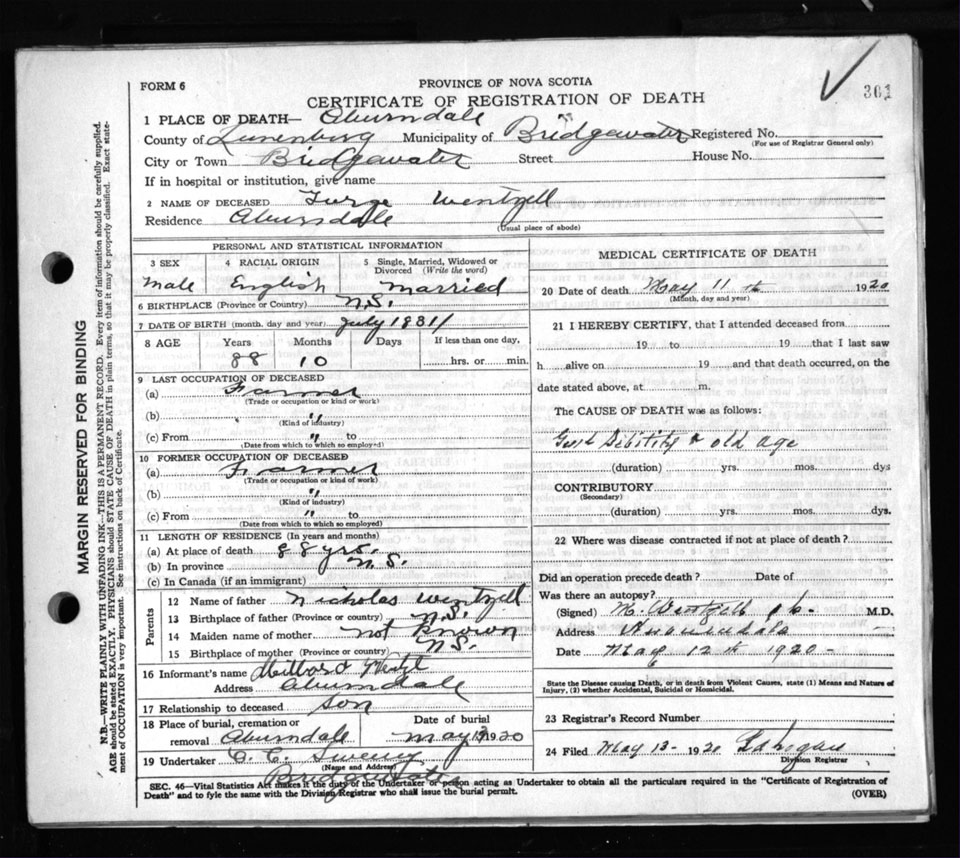 361
FORM 6
PROVINCE OF NOVA SCOTIA
CERTIFICATE OF REGISTRATION OF DEATH
1 PLACE OF DEATH—
County of Lunenburg Municipality of Bridgewater Registered No.
(For use of Registrar General only)
City or Town Bridgewater Street House No.
If in hospital or institution, give name
2 NAME OF DECEASED Wentzell
Residence
(Usual place of abode)
MARGIN RESERVED FOR BINDING
N.B.—WRITE PLAINLY WITH UNFADING INK—THIS IS A PERMANENT RECORD. Every item of information should be carefully supplied.
AGE should be stated EXACTLY. PHYSICIANS should STATE CAUSE OF DEATH in plain terms, so that it may be properly classified. Exact state-
ment of OCCUPATION is very important. See instructions on back of Certificate.
PERSONAL AND STATISTICAL INFORMATION
3 SEX 4 RACIAL ORIGIN 5 Single, Married, Widowed or
Divorced (Write the word)
Male English Married
6 BIRTHPLACE (Province or Country) N.S.
7 DATE OF BIRTH (month, day and year) July 1831
8 AGE Years Months Days If less than one day,
88 10 hrs. or min.
9 LAST OCCUPATION OF DECEASED
(a) Farmer
(Trade or occupation or kind of work)
(b) "
(Kind of industry)
(c) From " to
(Date from which to which so employed)
10 FORMER OCCUPATION OF DECEASED
(a) Farmer
(Trade or occupation or kind of work)
(b) "
(Kind of industry)
(c) From " to
(Date from which to which so employed)
11 LENGTH OF RESIDENCE (In years and months)
(a) At place of death 88 yrs.
(b) In province N.S.
(c) In Canada (if an immigrant)
Parents
12 Name of father Nicholas Wentzell
13 Birthplace of father (Province or country) N.S.
14 Maiden name of mother Not Known
15 Birthplace of mother (Province or country) N.S.
16 Informant's name
Address
17 Relationship to deceased Son
18 Place of burial, cremation or Date of burial
removal May 1920
19 Undertaker
(Name and Address)
Bridgewater
MEDICAL CERTIFICATE OF DEATH
20 Date of death May 11th 1920
(Month, day and year)
21 I HEREBY CERTIFY, that I attended deceased from
19 to 19 that I last saw
h alive on 19 and that death occurred, on the
date stated above, at m.
The CAUSE OF DEATH was as follows:
Debility & old age
(duration) yrs. mos. dys
CONTRIBUTORY
(Secondary)
(duration) yrs. mos. dys.
22 Where was disease contracted if not at place of death?
Did an operation precede death? Date of
Was there an autopsy?
(Signed) M.D.
Address
Date May 12th 1920
State the Disease causing Death, or in death from Violent Causes, state (1) Means and Nature of
Injury, (2) whether Accidental, Suicidal or Homicidal.
23 Registrar's Record Number
24 Filed May 13 - 1920
Division Registrar
SEC. 46—Vital Statistics Act makes it the duty of the Undertaker or person acting as Undertaker to obtain all the particulars required in the "Certificate of Registration of
Death" and to fyle the same with the Division Registrar who shall issue the burial permit.
(OVER)